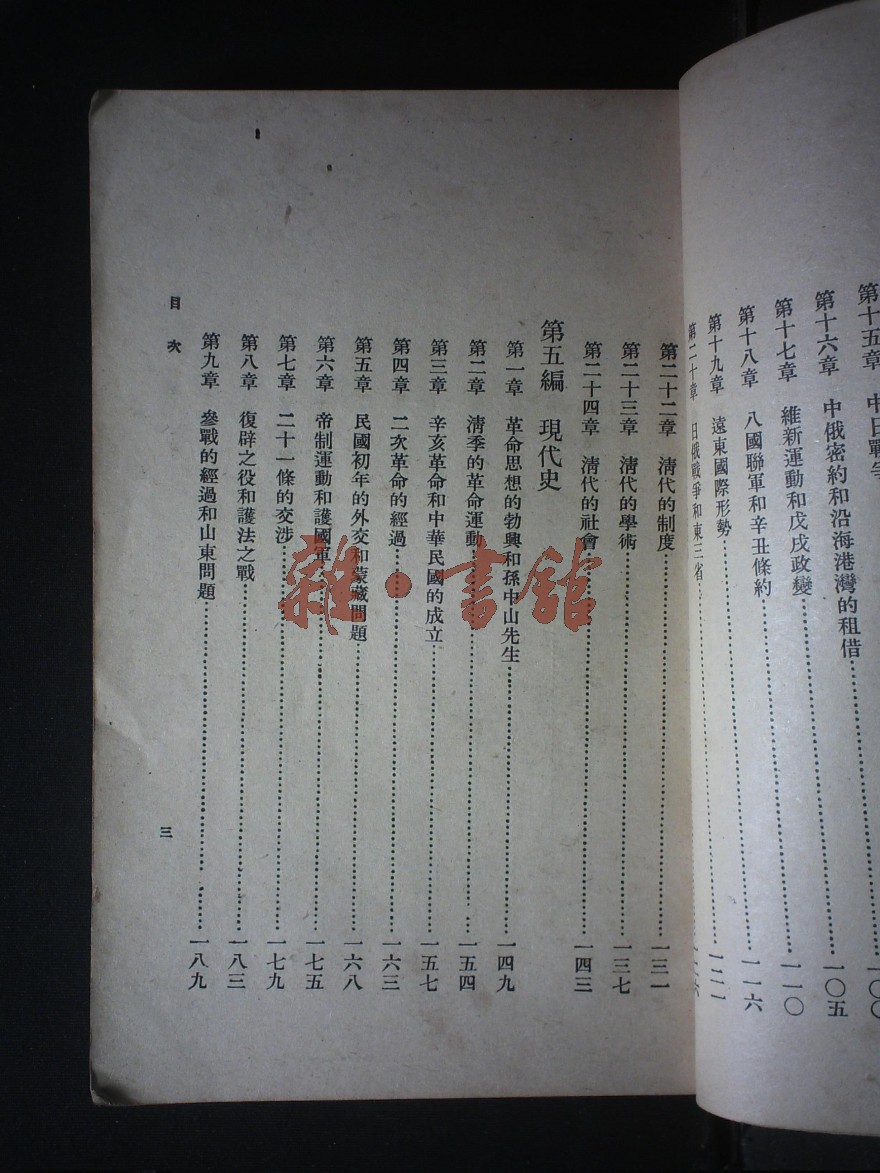 第十五章 中日戰爭……一〇〇
第十六章 中俄密約和沿海港灣的租借……一〇五
第十七章 維新運動和戊戌政變……一一〇
第十八章 八國聯軍和辛丑條約……一一六
第十九章 遠東國際形勢……一二一
第二十章 日俄戰爭和東三省……一二六
第二十二章 清代的制度……一三一
第二十三章 清代的學術……一三七
第二十四章 清代的社會……一四三
第五編 現代史
第一章 革命思想的勃興和孫中山先生……一四九
第二章 清季的革命運動……一五四
第三章 辛亥革命和中華民國的成立……一五七
第四章 二次革命的經過……一六三
第五章 民國初年的外交和蒙藏問題……一六八
第六章 帝制運動和護國軍……一七五
第七章 二十一條的交涉……一七九
第八章 復辟之役和護法之戰……一八三
第九章 參戰的經過和山東問題……一八九
目次
三
雜·書館